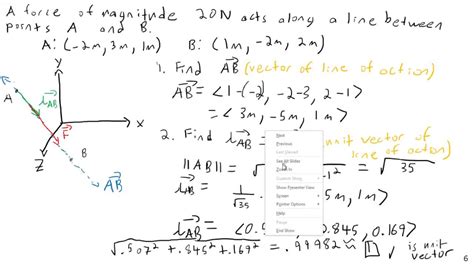 A force of magnitude 20N acts along a line between
points A and B.
A: (-2m, 3m, 1m) B: (1m, -2m, 2m)
1. Find AB (vector of line of action)
AB = <1-(-2), -2-3, 2-1>
= <3m, -5m, 1m>
2. Find λAB unit vector of
line of action)
||AB|| = √ -1² = √35
λAB = 1/√35 5m, 1m>
λAB = <0.5 0.845, 0.169>
√.507² + .845² + .169² = .99982 ≈ 1 ✓ is unit
vector
Y
A
λAB
F
X
Z
B
AB
Next
Previous
Last Viewed
See All Slides
Zoom In
Custom Show
Show Presenter View
Screen
Pointer Options
Help
Pause
End Show
6